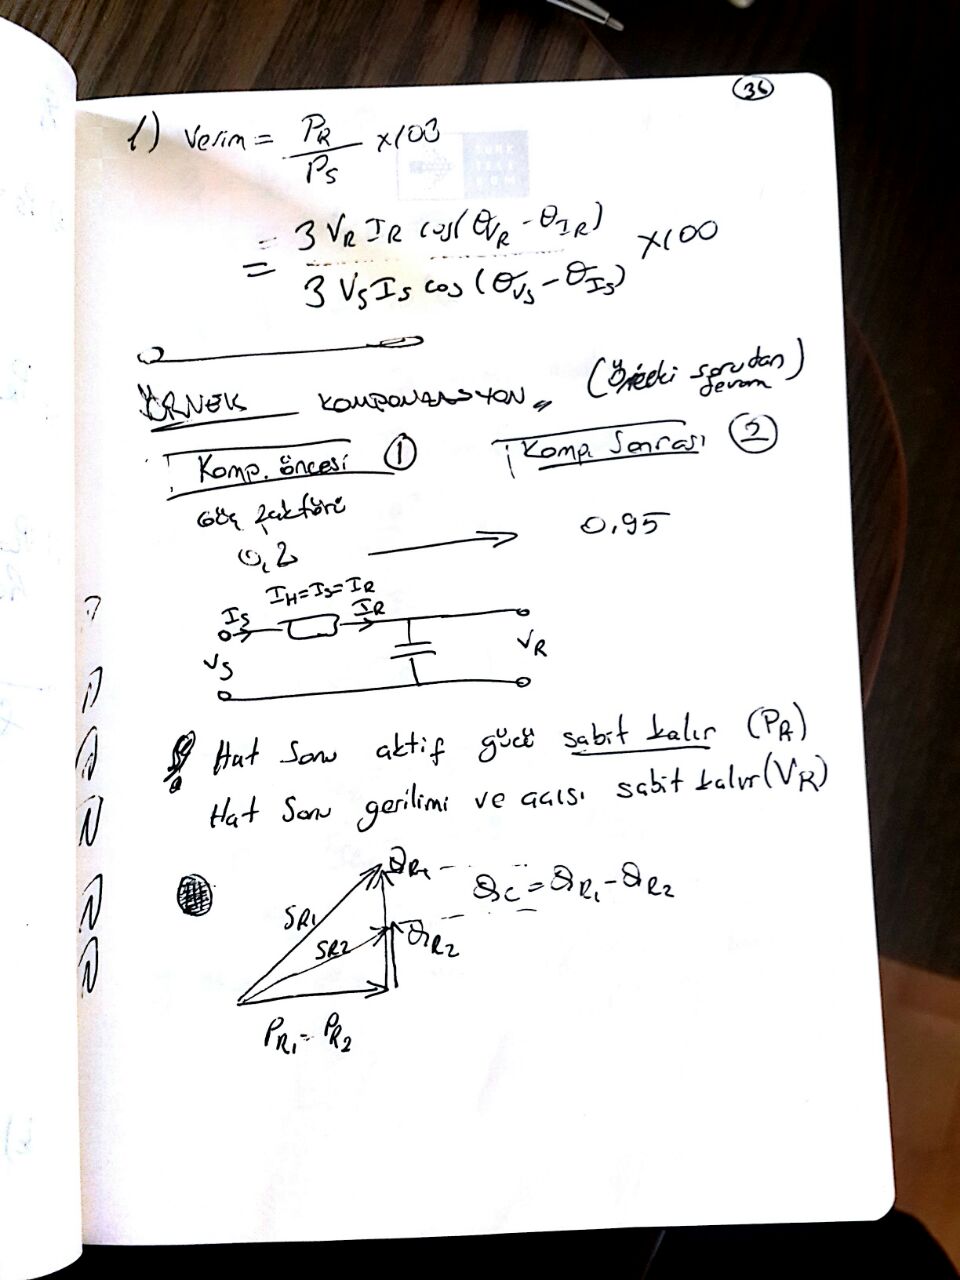 36
f) Verim = PR / PS x100
= 3 VR IR cos(θVR - θIR) / 3 VS IS cos(θVS - θIS) x100
ÖRNEK KOMPONANSSYON (Önceki sorudan devam)
Komp. öncesi 1
Komp. Sonrası 2
Güç faktörü
0,2 → 0,95
IH=IS=IR
IS IR
VS VR
Hat Sonu aktif gücü sabit kalır (PR)
Hat Sonu gerilimi ve açısı sabit kalır (VR)
QR1
QC = QR1 - QR2
SR1
SR2 QR2
PR1 = PR2